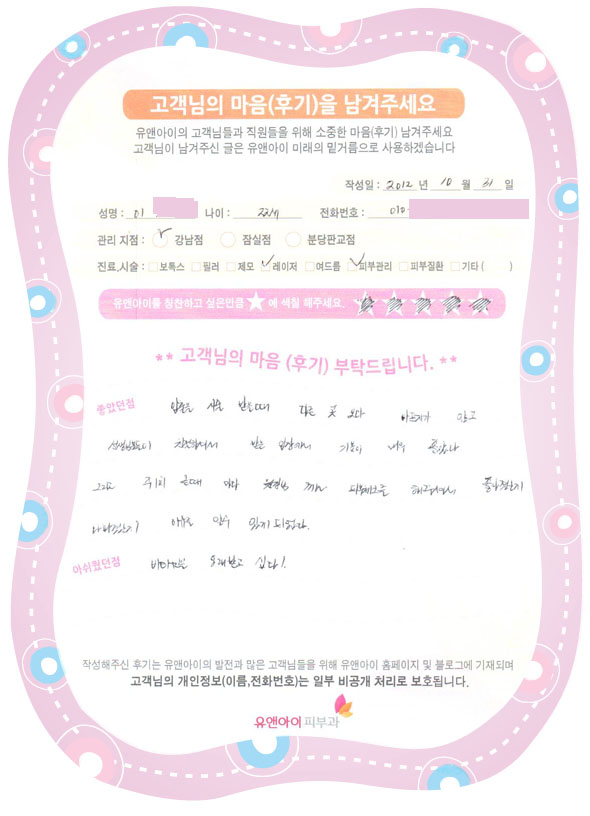 고객님의 마음(후기)을 남겨주세요
유앤아이의 고객님들과 직원들을 위해 소중한 마음(후기) 남겨주세요
고객님이 남겨주신 글은 유앤아이 미래의 밑거름으로 사용하겠습니다
작성일 : 2012 년 10 월 31 일
성명 : 이 나이 : 22세 전화번호 : 010-
관리 지점 : 강남점 잠실점 분당판교점
진료.시술 : 보톡스 필러 제모 레이저 여드름 피부관리 피부질환 기타 ( )
유앤아이를 칭찬하고 싶은만큼 ★ 에 색칠 해주세요.
** 고객님의 마음 (후기) 부탁드립니다. **
좋았던점 시술 받을때 다른 곳 보다 않고
선생님들이 받는 입장에서 기분이 너무 좋았다
그리고 올때 마다 해주셔서 좋아졌는지
나빠졌는지 알수 있게 되었다.
아쉬웠던점 받고 싶다!
작성해주신 후기는 유앤아이의 발전과 많은 고객님들을 위해 유앤아이 홈페이지 및 블로그에 기재되며
고객님의 개인정보(이름,전화번호)는 일부 비공개 처리로 보호됩니다.
유앤아이 피부과